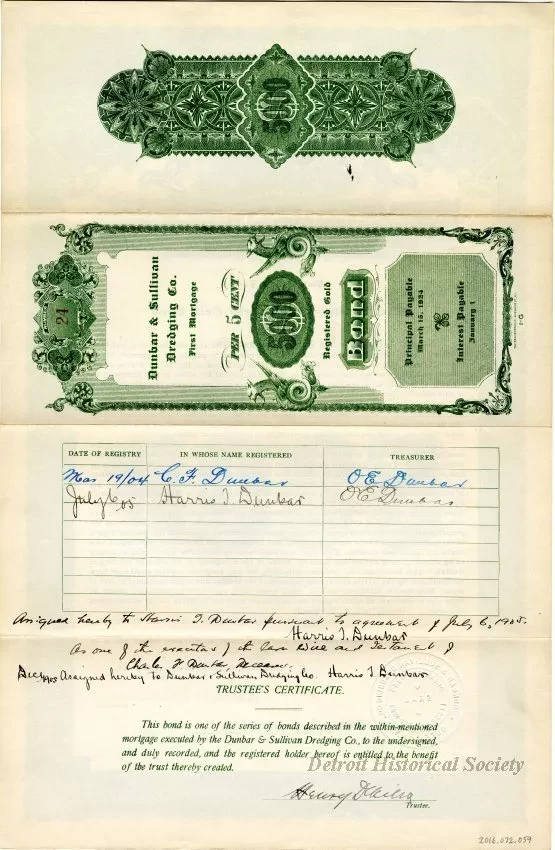 5000
24
Dunbar & Sullivan
Dredging Co.
First Mortgage
PER 5 CENT
5000
Registered Gold
Bond
Principal Payable
March 15, 1924
Interest Payable
January 1
DATE OF REGISTRY IN WHOSE NAME REGISTERED TREASURER
Mar 19/04 C. F. Dunbar O E Dunbar
July 6, 05 Harris T. Dunbar O E Dunbar
Assigned hereby to Harris T. Dunbar pursuant to agreement of July 6, 1905.
Harris T. Dunbar
As one of the executors of the last Will and Testament of
Charles F Dunbar, Deceased.
Assigned hereby to Dunbar & Sullivan Dredging Co. Harris T Dunbar
TRUSTEE'S CERTIFICATE.
This bond is one of the series of bonds described in the within-mentioned
mortgage executed by the Dunbar & Sullivan Dredging Co., to the undersigned,
and duly recorded, and the registered holder hereof is entitled to the benefit
of the trust thereby created.
Detroit Historical Society
Henry
Trustee.
2016.072.059